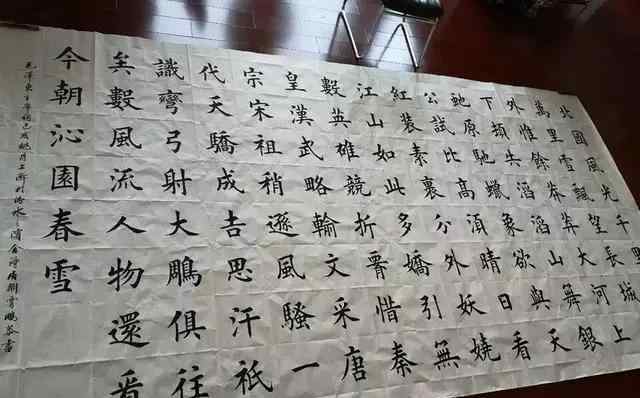 北國風光千里
萬里雪飄望長城
外惟餘莽莽大河上
下頓失滔滔山舞銀
虵原馳蠟象欲與天
公試比高須晴日看
紅裝素裹分外妖嬈
江山如此多嬌引無
數英雄競折腰惜秦
皇漢武略輸文采唐
宗宋祖稍遜風騷一
代天驕成吉思汗祇
識彎弓射大鵰俱往
矣數風流人物還看
今朝沁園春雪
毛澤東主席詞